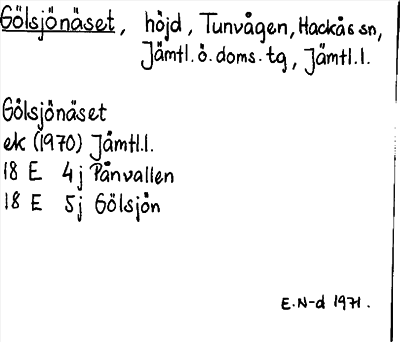 Gölsjönäset, höjd, Tunvågen, Hackås sn,
Jämtl.ö.doms.tg, Jämtl.l.
Gölsjönäset
ek (1970) Jämtl.l.
18 E 4j Pånvallen
18 E 5j Gölsjön
E.N-d 1971.